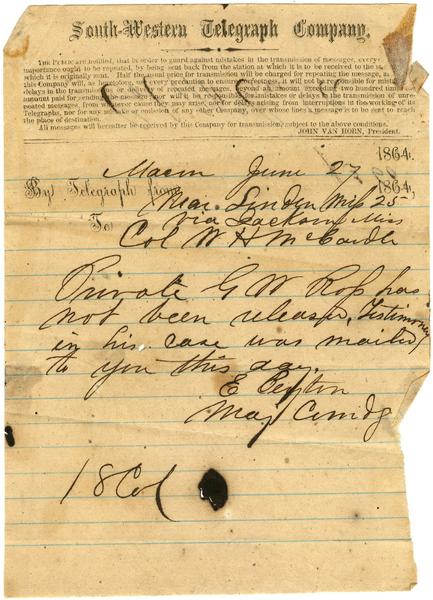 South-Western Telegraph Company,
THE PUBLIC are notified, that in order to guard against mistakes in the transmission of messages, every
importance ought to be repeated, by being sent back from the station at which it is to be received to the
which it is originally sent. Half the usual price for transmission will be charged for repeating the message,
this Company will as heretofore, use every precaution to ensure correctness, it will not be responsible for
delays in the transmission or delivery of repeated messages, beyond an amount exceeding two hundred times
amount paid for sending the message nor will it be responsible for mistakes or delays in the transmission of
repeated messages, from whatever cause they may arise, nor for delays arising from interruptions in the working of its
Telegraphs, nor for any mistake or omission of any other Company, over whose lines a message is to be sent to reach
the place of destination.
All messages will hereafter be received by this Company for transmission, subject to the above conditions.
JOHN VAN HORN, President.
Macon June 27 1864.
By Telegraph from Near Linden 25 1864,
Via Jackson Miss
To Col W H McCardle
Private G W Ross has
not been released, Testimony
in his case was mailed
to you this day.
E Peyton
Maj Comdg
18 Col